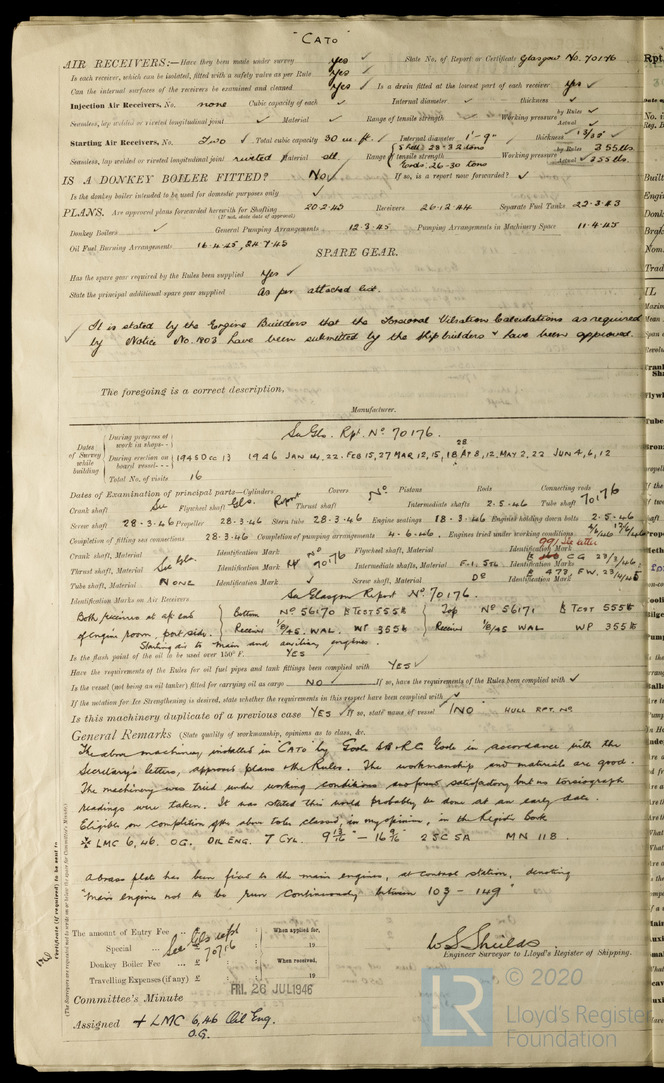 "CATO"
AIR RECEIVERS:—Have they been made under survey yes ✓ State No. of Report or Certificate Glasgow No. 70176
Is each receiver, which can be isolated, fitted with a safety valve as per Rule yes ✓
Can the internal surfaces of the receivers be examined and cleaned yes ✓ Is a drain fitted at the lowest part of each receiver yes ✓
Injection Air Receivers, No. none Cubic capacity of each ✓ Internal diameter ✓ thickness ✓
Seamless, lap welded or riveted longitudinal joint ✓ Material ✓ Range of tensile strength Working pressure by Rules ✓ Actual ✓
Starting Air Receivers, No. Two ✓ Total cubic capacity 30 cu. ft. Internal diameter 1'-9" thickness
Seamless, lap welded or riveted longitudinal joint riveted Material stl. Range of tensile strength Shell 28-32 tons Ends 26-30 tons Working pressure by Rules 355 lbs Actual 355 lbs.
IS A DONKEY BOILER FITTED? No ✓ If so, is a report now forwarded? ✓
Is the donkey boiler intended to be used for domestic purposes only ✓
PLANS. Are approved plans forwarded herewith for Shafting 20.2.45 Receivers 26.12.44 Separate Fuel Tanks 22.3.43
(If not, state date of approval)
Donkey Boilers ✓ General Pumping Arrangements 12.3.45 Pumping Arrangements in Machinery Space 11.4.45
Oil Fuel Burning Arrangements 16.4.45, 24.7.45
SPARE GEAR.
Has the spare gear required by the Rules been supplied yes ✓
State the principal additional spare gear supplied as per attached list.
✓ It is stated by the Engine Builders that the Torsional Vibration Calculations as required
by Notice No. 1403 have been submitted by the shipbuilders & have been approved.
The foregoing is a correct description,
Manufacturer.
Dates of Survey while building
During progress of work in shops-- See Gls. Rpt. No 70176.
During erection on board vessel--- 1945 Dec 13 1946 JAN 14, 22. FEB 15, 27 MAR 12, 15, 18 28 AP 8, 12, MAY 2, 22 JUN 4, 6, 12
Total No. of visits 16
Dates of Examination of principal parts—Cylinders Covers Pistons Rods Connecting rods
Crank shaft See Flywheel shaft Gls. Report Thrust shaft No Intermediate shafts 2.5.46 Tube shaft 70176
Screw shaft 28.3.46 Propeller 28.3.46 Stern tube 28.3.46 Engine seatings 18.3.46 Engines holding down bolts 2.5.46
Completion of fitting sea connections 28.3.46 Completion of pumping arrangements 4.6.46. Engines tried under working conditions 4/6/46 12/6/46
Crank shaft, Material Identification Mark Flywheel shaft, Material Identification Mark
Thrust shaft, Material See Gls. Identification Mark No 70176 Intermediate shafts, Material Identification Marks
Tube shaft, Material NONE Identification Mark ✓ Screw shaft, Material Do Identification Mark
Identification Marks on Air Receivers See Glasgow Report No 70176.
Both receivers at aft end of engine room, port side. Bottom Receiver No 56170 TEST 555 1/8/45. WAL. WP 355 Top Receiver No 56171 TEST 555 1/8/45 WAL WP 355
Starting air to main and auxiliary engines.
Is the flash point of the oil to be used over 150° F. YES
Have the requirements of the Rules for oil fuel pipes and tank fittings been complied with YES ✓
Is the vessel (not being an oil tanker) fitted for carrying oil as cargo NO ✓ If so, have the requirements of the Rules been complied with ✓
If the notation for Ice Strengthening is desired, state whether the requirements in this respect have been complied with ✓
Is this machinery duplicate of a previous case YES ✓ If so, state name of vessel "INO" HULL RPT. No.
General Remarks (State quality of workmanship, opinions as to class, &c.
The above machinery installed in "CATO" by Goole SB & RC Goole in accordance with the
Secretary's letters, approved plans & the Rules. The workmanship and materials are good.
The machinery was tried under working conditions and found satisfactory but no torsiograph
readings were taken. It was stated this would probably be done at an early date.
Eligible on completion of the above to be classed, in my opinion, in the Register Book
✠ LMC 6,46. OG. OIL ENG. 7 CYL. 9 13/16" – 16 9/16" 2SCSA MN 118.
A brass plate has been fixed to the main engines, at control station, denoting
"Main engine not to be run continuously between 103 – 149"
The amount of Entry Fee See Gls rept When applied for,
Special 70176 19
Donkey Boiler Fee £ When received,
Travelling Expenses (if any) £ 19
W S Shields
Engineer Surveyor to Lloyd's Register of Shipping.
FRI. 26 JUL 1946
Committee's Minute
Assigned + LMC 6,46 Oil Eng.
O.G.
Certificate (if required) to be sent to
(The Surveyors are requested not to write on or below the space for Committee's Minute.)
LR © 2020
Lloyd's Register
Foundation